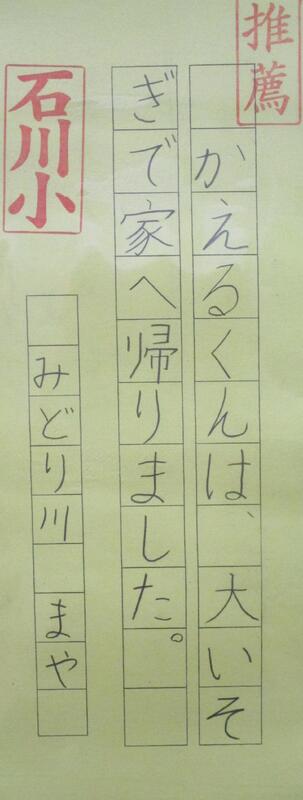 推薦
かえるくんは、大いそ
ぎで家へ帰りました。
石川小
みどり川 まや